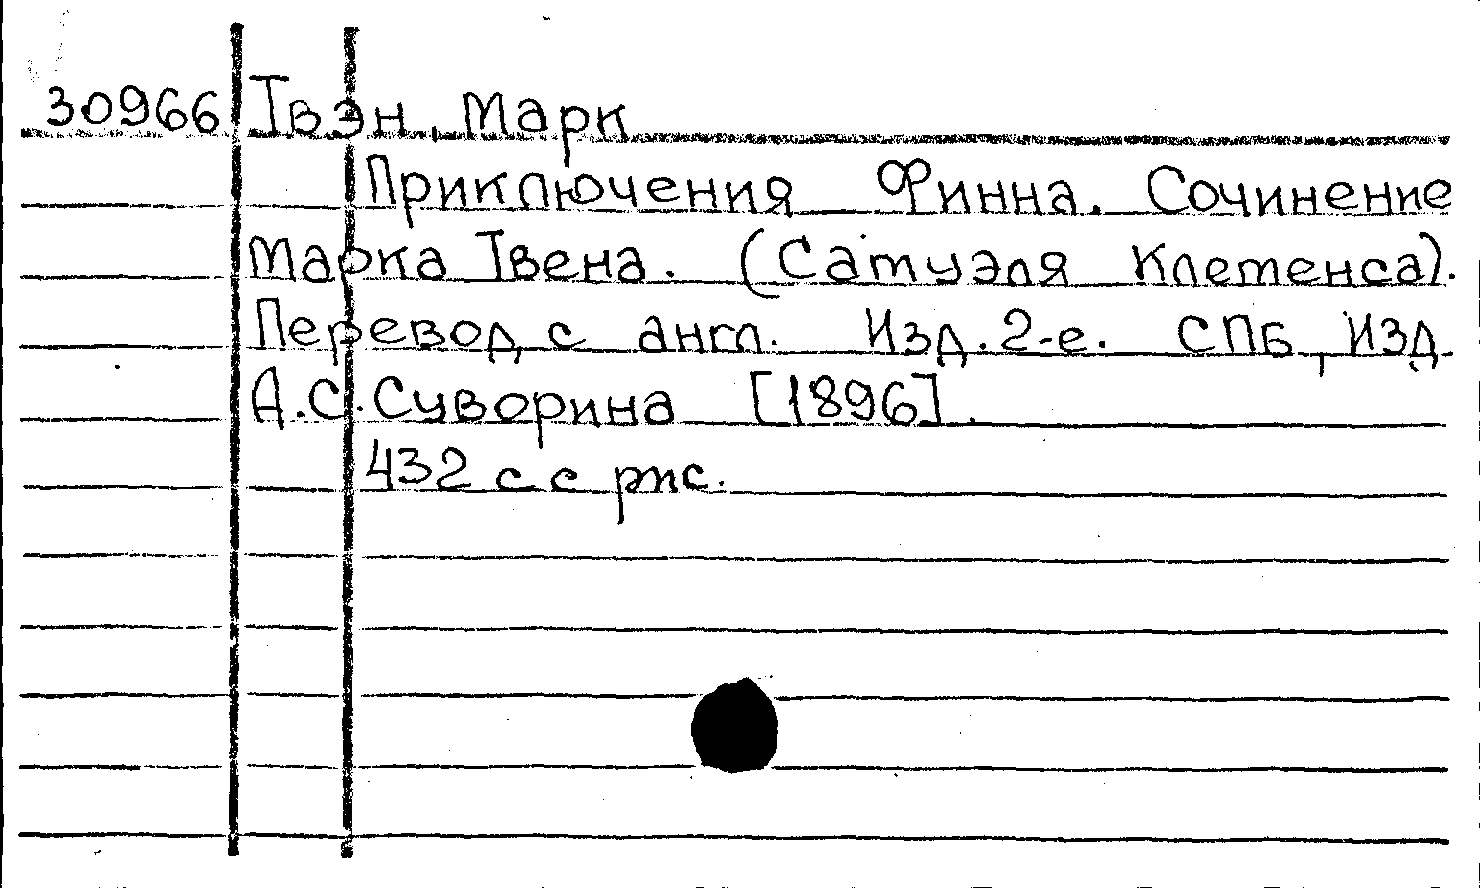 30966 Твэн, Марк
Приключения Финна. Сочинение
Марка Твена. (Сатуэля Клетенса).
Перевод с англ. Изд. 2-е. СПБ, Изд.
А.С. Суворина [1896].
432 с с рис.